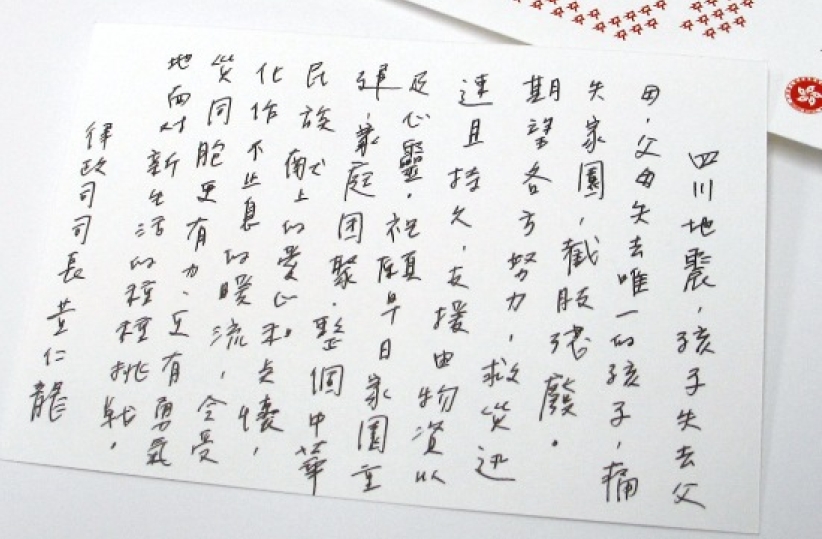 四川地震，孩子失去父
母，父母失去唯一的孩子，痛
失家園，截肢殘廢。
期望各方努力，救災迅
速且持久，支援由物資以
及心靈。祝願早日家園重
建，家庭团聚。整個中華
民族献上的愛心和关懷，
化作不止息的暖流，令受
災同胞更有力、更有勇氣
地面对新生活的種種挑戰。
律政司司長黃仁龍